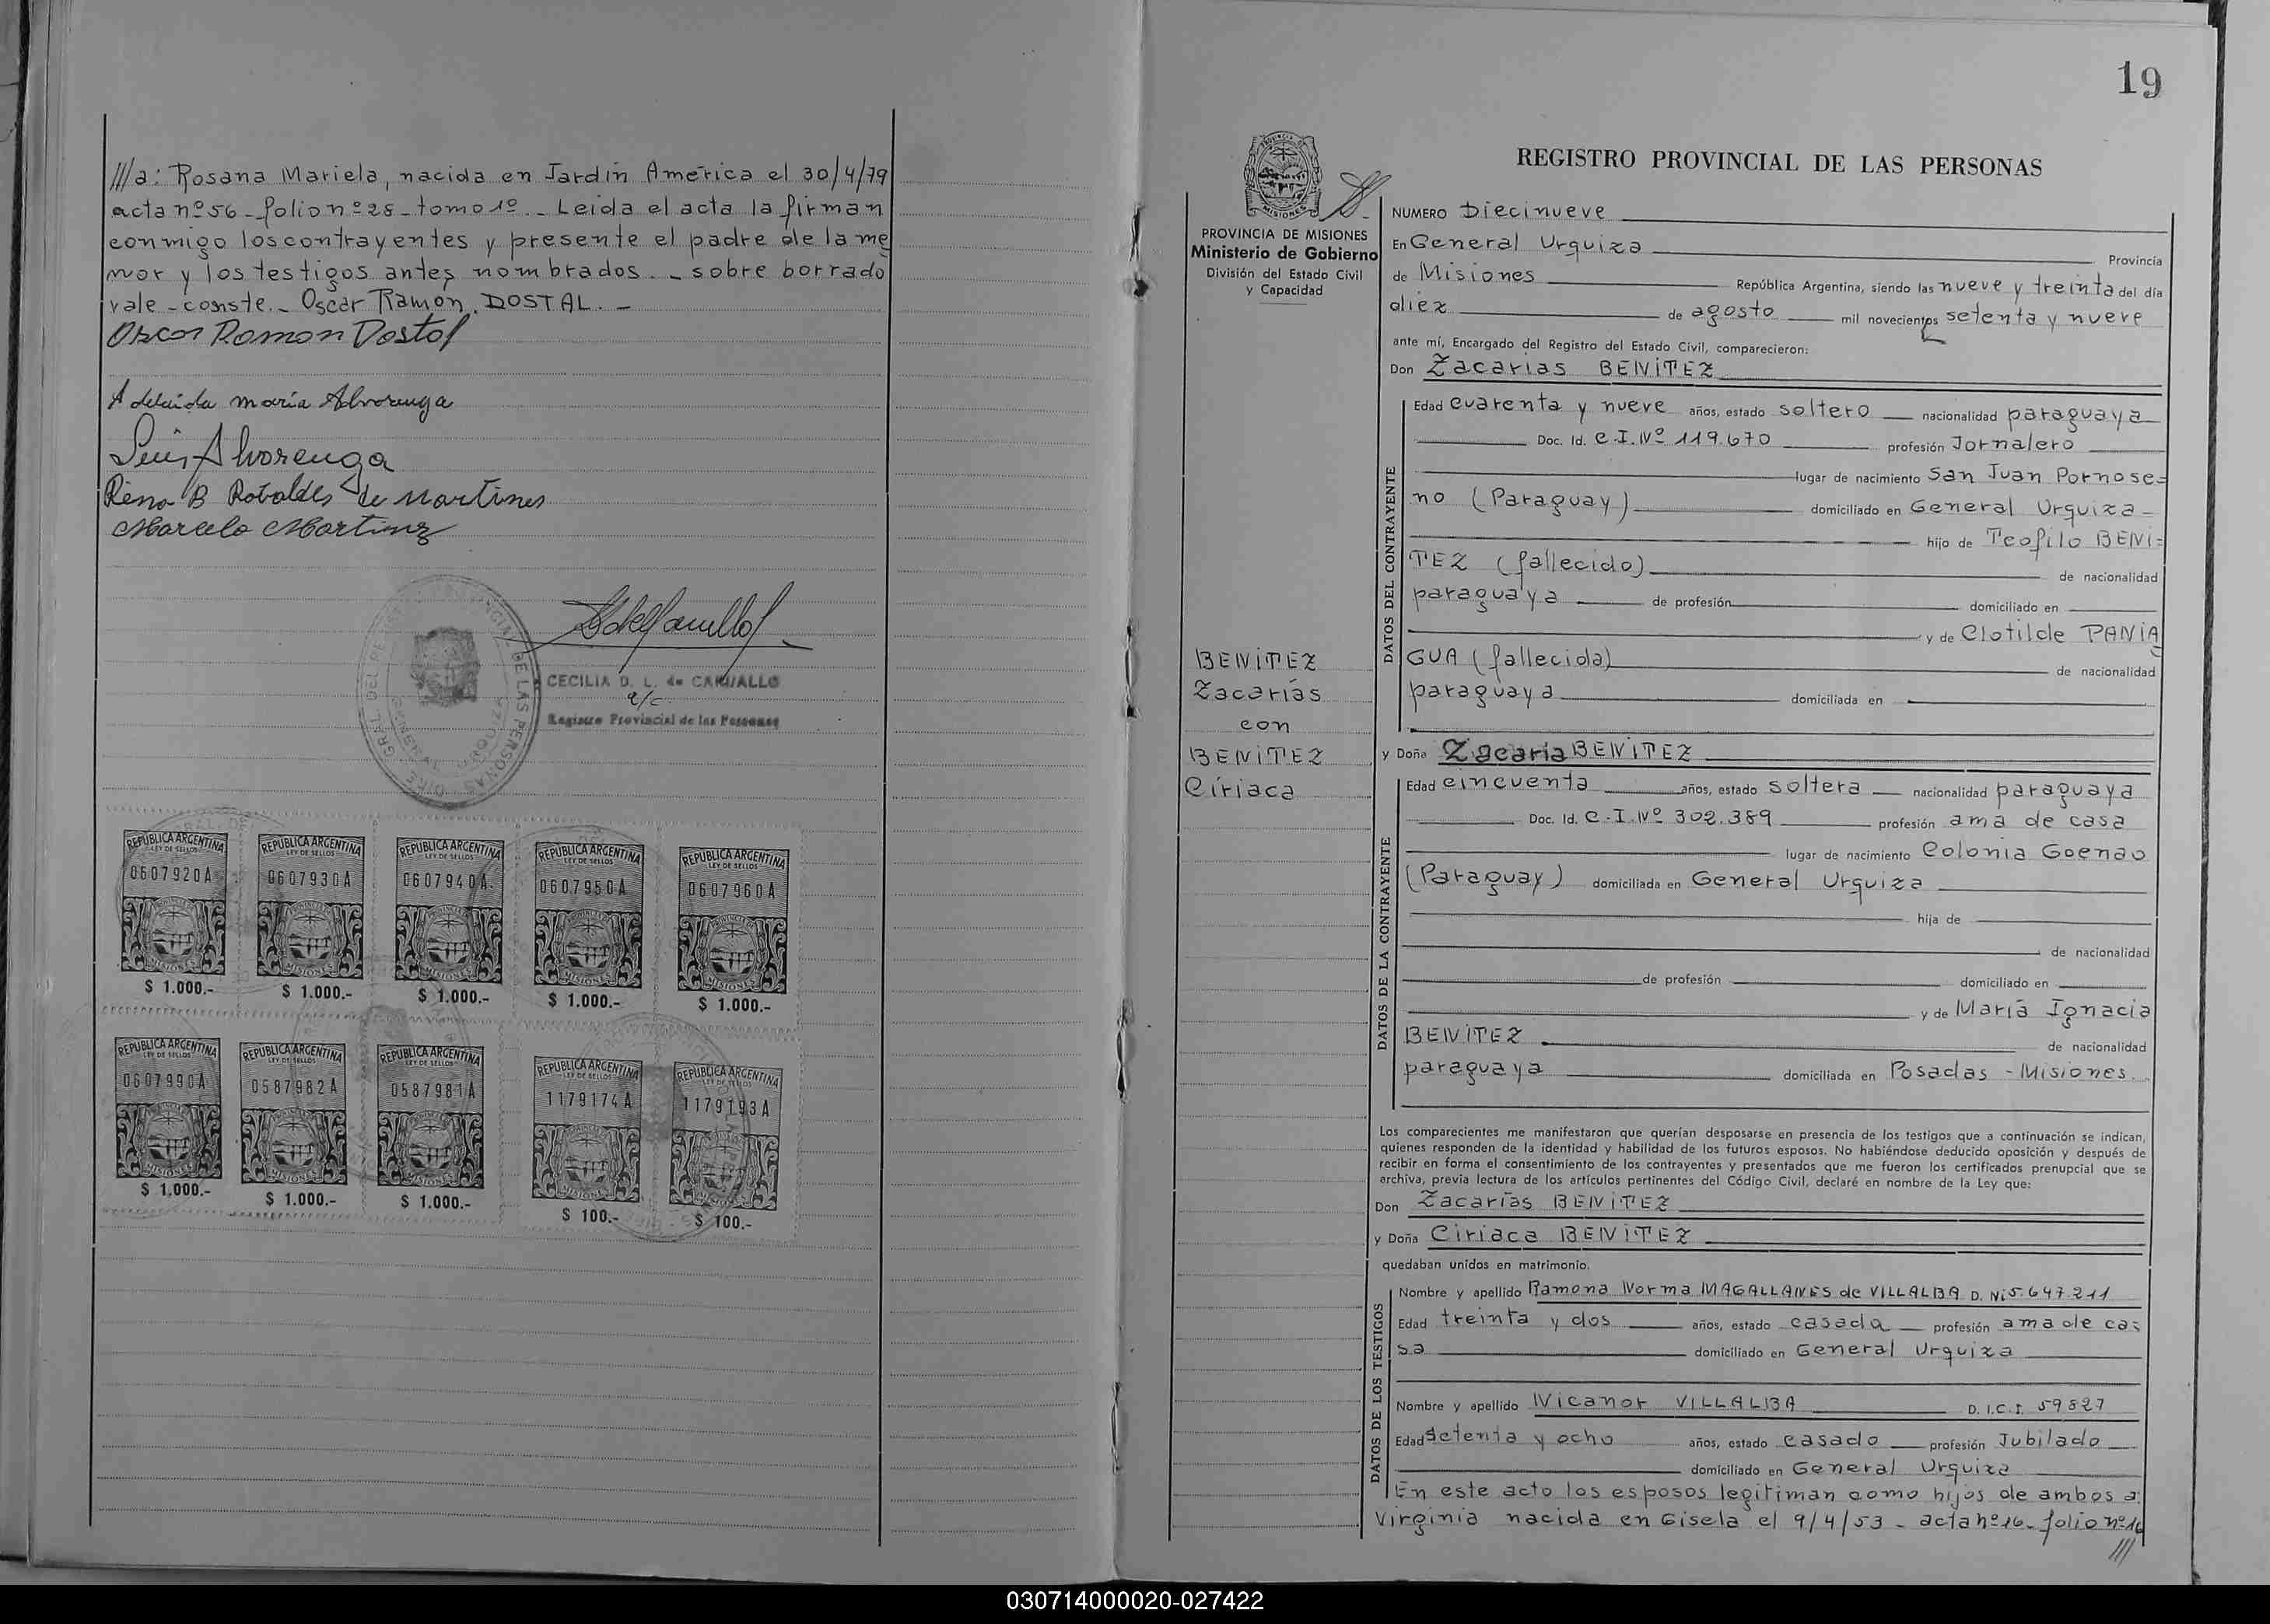 ///a: Rosana Mariela, nacida en Jardín América el 30/4/79
acta nº 56 - folio nº 28 - tomo 1º. - Leida el acta la firman
conmigo los contrayentes y presente el padre de la me
nor y los testigos antes nombrados. - sobre borrado
vale - conste. - Oscar Ramón DOSTAL. -
Oscar Ramon Dostal
Adelaida maria Alvorenga
Luis Alvorenga
B Robaldes de Martines
Marcelo Martinez
CECILIA D. L. de CARVALLO
a/c
Registro Provincial de las Personas
REPUBLICA ARGENTINA
LEY DE SELLOS
0607920A
MISIONES
$ 1.000.-
REPUBLICA ARGENTINA
LEY DE SELLOS
0607930A
MISIONES
$ 1.000.-
REPUBLICA ARGENTINA
LEY DE SELLOS
0607940A
MISIONES
$ 1.000.-
REPUBLICA ARGENTINA
LEY DE SELLOS
0607950A
MISIONES
$ 1.000.-
REPUBLICA ARGENTINA
LEY DE SELLOS
0607960A
MISIONES
$ 1.000.-
REPUBLICA ARGENTINA
LEY DE SELLOS
0607990A
MISIONES
$ 1.000.-
REPUBLICA ARGENTINA
LEY DE SELLOS
0587982A
MISIONES
$ 1.000.-
REPUBLICA ARGENTINA
LEY DE SELLOS
0587981A
MISIONES
$ 1.000.-
REPUBLICA ARGENTINA
LEY DE SELLOS
1179174A
MISIONES
$ 100.-
REPUBLICA ARGENTINA
LEY DE SELLOS
1179193A
MISIONES
$ 100.-
19
PROVINCIA DE MISIONES
Ministerio de Gobierno
División del Estado Civil
y Capacidad
BENiTEZ
Zacarías
con
BENiTEZ
Ciriaca
REGISTRO PROVINCIAL DE LAS PERSONAS
NUMERO Diecinueve
En General Urquiza Provincia
de Misiones República Argentina, siendo las nueve y treinta del día
diez de agosto mil novecientos setenta y nueve
ante mí, Encargado del Registro del Estado Civil, comparecieron:
Don Zacarias BENiTEZ
DATOS DEL CONTRAYENTE
Edad cuarenta y nueve años, estado soltero nacionalidad paraguaya
Doc. Id. C.I. Nº 119.670 profesión Jornalero
lugar de nacimiento San Juan Pornose=
no (Paraguay) domiciliado en General Urquiza -
hijo de Teofilo BENi=
TEZ (fallecido) de nacionalidad
paraguaya de profesión domiciliado en
y de Clotilde PANiA
GUA (fallecida) de nacionalidad
paraguaya domiciliada en
y Doña Zacaria BENiTEZ
DATOS DE LA CONTRAYENTE
Edad cincuenta años, estado soltera nacionalidad paraguaya
Doc. Id. C.I. Nº 302.389 profesión ama de casa
lugar de nacimiento Colonia Goenao
(Paraguay) domiciliada en General Urquiza
hija de
de nacionalidad
de profesión domiciliado en
y de María Ignacia
BENiTEZ de nacionalidad
paraguaya domiciliada en Posadas - Misiones.
Los comparecientes me manifestaron que querían desposarse en presencia de los testigos que a continuación se indican,
quienes responden de la identidad y habilidad de los futuros esposos. No habiéndose deducido oposición y después de
recibir en forma el consentimiento de los contrayentes y presentados que me fueron los certificados prenupcial que se
archiva, previa lectura de los artículos pertinentes del Código Civil, declaré en nombre de la Ley que:
Don Zacarías BENiTEZ
y Doña Ciriaca BENiTEZ
quedaban unidos en matrimonio.
DATOS DE LOS TESTIGOS
Nombre y apellido Ramona Norma MAGALLANES de VILLALBA D. Ni 5.647.211
Edad treinta y dos años, estado casada profesión ama de ca=
sa domiciliado en General Urquiza
Nombre y apellido Nicanor VILLALBA D. I.C.I. 59527
Edad setenta y ocho años, estado casado profesión Jubilado
domiciliado en General Urquiza
En este acto los esposos legitiman como hijos de ambos a:
Virginia nacida en Gisela el 9/4/53 - acta nº 16 - folio nº 16
///
030714000020-027422